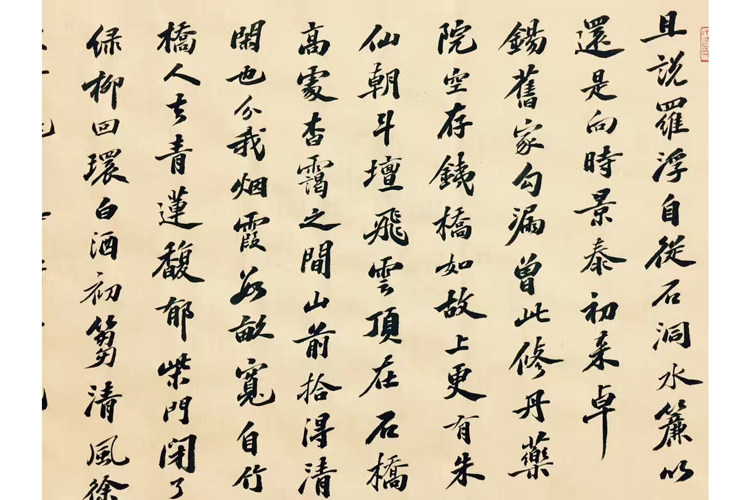 且說羅浮自從石洞水簾以
還是向時景泰初來卓
錫舊家勾漏曾此修丹藥
院空存鐵橋如故上更有朱
仙朝斗壇飛雲頂在石橋
高處杳靄之間山前拾得清
閑也分我烟霞數畝寬自竹
橋人去青蓮馥郁柴門閉了
綠柳回環白酒初篘清風徐